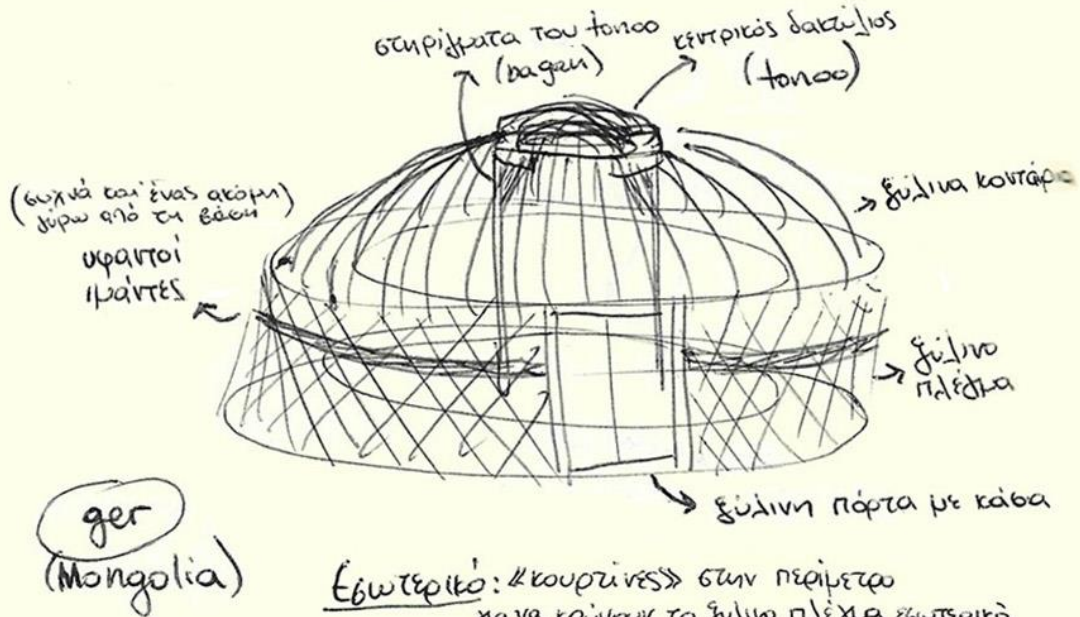 στηρίγματα του tonoo
(bagan)
κεντρικός δακτύλιος
(tonoo)
(συχνά και ένας ακόμη
γύρω από τη βάση)
υφαντοί
ιμάντες
ξύλινα κοντάρια
ξύλινο
πλέγμα
ξύλινη πόρτα με κάσα
ger
(Mongolia)
Εσωτερικό: «κουρτίνες» στην περίμετρο
το ξύλινο πλέγμα εσωτερικά